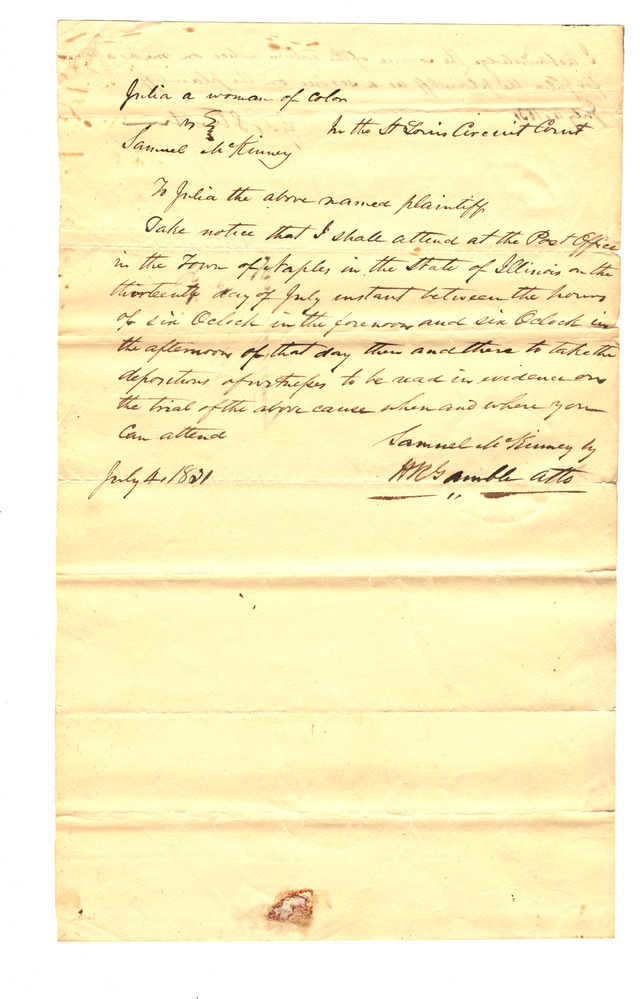 Julia a woman of color
vs In the St Louis Circuit Court
Samuel McKinney
To Julia the above named plaintiff
Take notice that I shall attend at the Post Office
in the Town of Naples in the State of Illinois on the
thirteenth day of July instant between the hours
of six Oclock in the forenoon and six Oclock in
the afternoon of that day then and there to take the
depositions of witnesses to be read in evidence on
the trial of the above cause when and where you
can attend
Samuel McKinney by
July 4, 1831 H R Gamble Atto